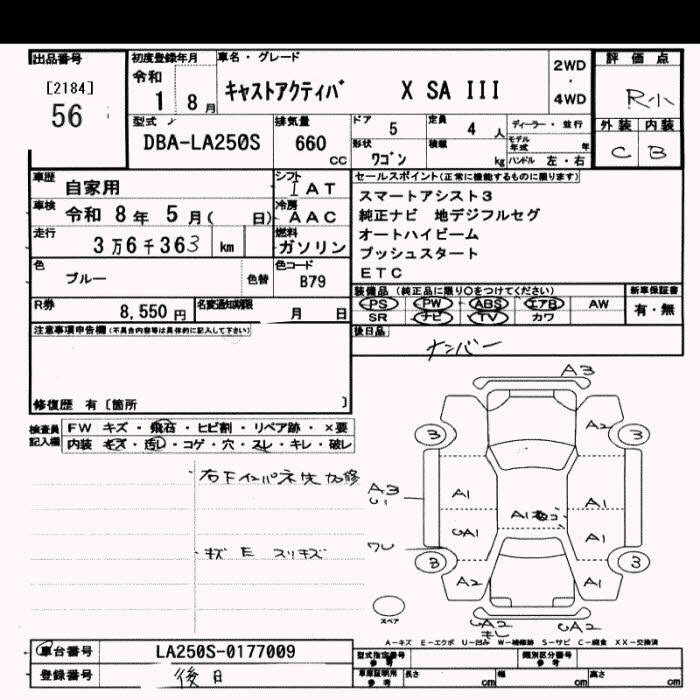 出品番号
[2184]
56
初度登録年月
令和
1 8月
車名・グレード
キャストアクティバ X SA III
2WD
・
4WD
評価点
R小
外装 内装
C B
型式
DBA-LA250S
排気量
660
CC
ドア
5
定員
4人
形状
ワゴン
積載
kg
ディーラー・並行
モデル年式 年
ハンドル 左・右
車歴 自家用
シフト
I AT
車検 令和 8年 5月( 日)
冷房
AAC
走行 3万6千363 km
燃料
ガソリン
色 ブルー
色替
色コード
B79
R券 8,550円
名変通知期限 月 日
セールスポイント(正常に機能するものに限ります)
スマートアシスト3
純正ナビ 地デジフルセグ
オートハイビーム
プッシュスタート
ETC
装備品(純正品に限り○をつけてください)
新車保証書
PS PW ABS エアB AW
SR ナビ TV カワ
有・無
後日品
ナンバー
注意事項申告欄(不具合内容等は具体的に記入して下さい)
修復歴 有〔箇所 〕
検査員記入欄
FW キズ・飛石・ヒビ割・リペア跡・×要
内装 キズ・汚レ・コゲ・穴・スレ・キレ・破レ
右下インパネ先加修
キズ E スリキズ
A3
A2
3
3
A3
U1
A1
A1
A1
UA1
A1
ワレ
3
3
A2
A1
スペア
UA2
UA2
A-キズ E-エクボ U-凹み W-補修跡 S-サビ C-腐食 XX-交換済
車台番号 LA250S-0177009
登録番号 後日
型式指定番号
参考
類別区分番号
参考
車庫証明用
参考
長さ cm
幅 cm
高さ cm